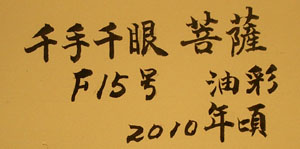 千手千眼 菩薩
F15号 油彩
2010年頃